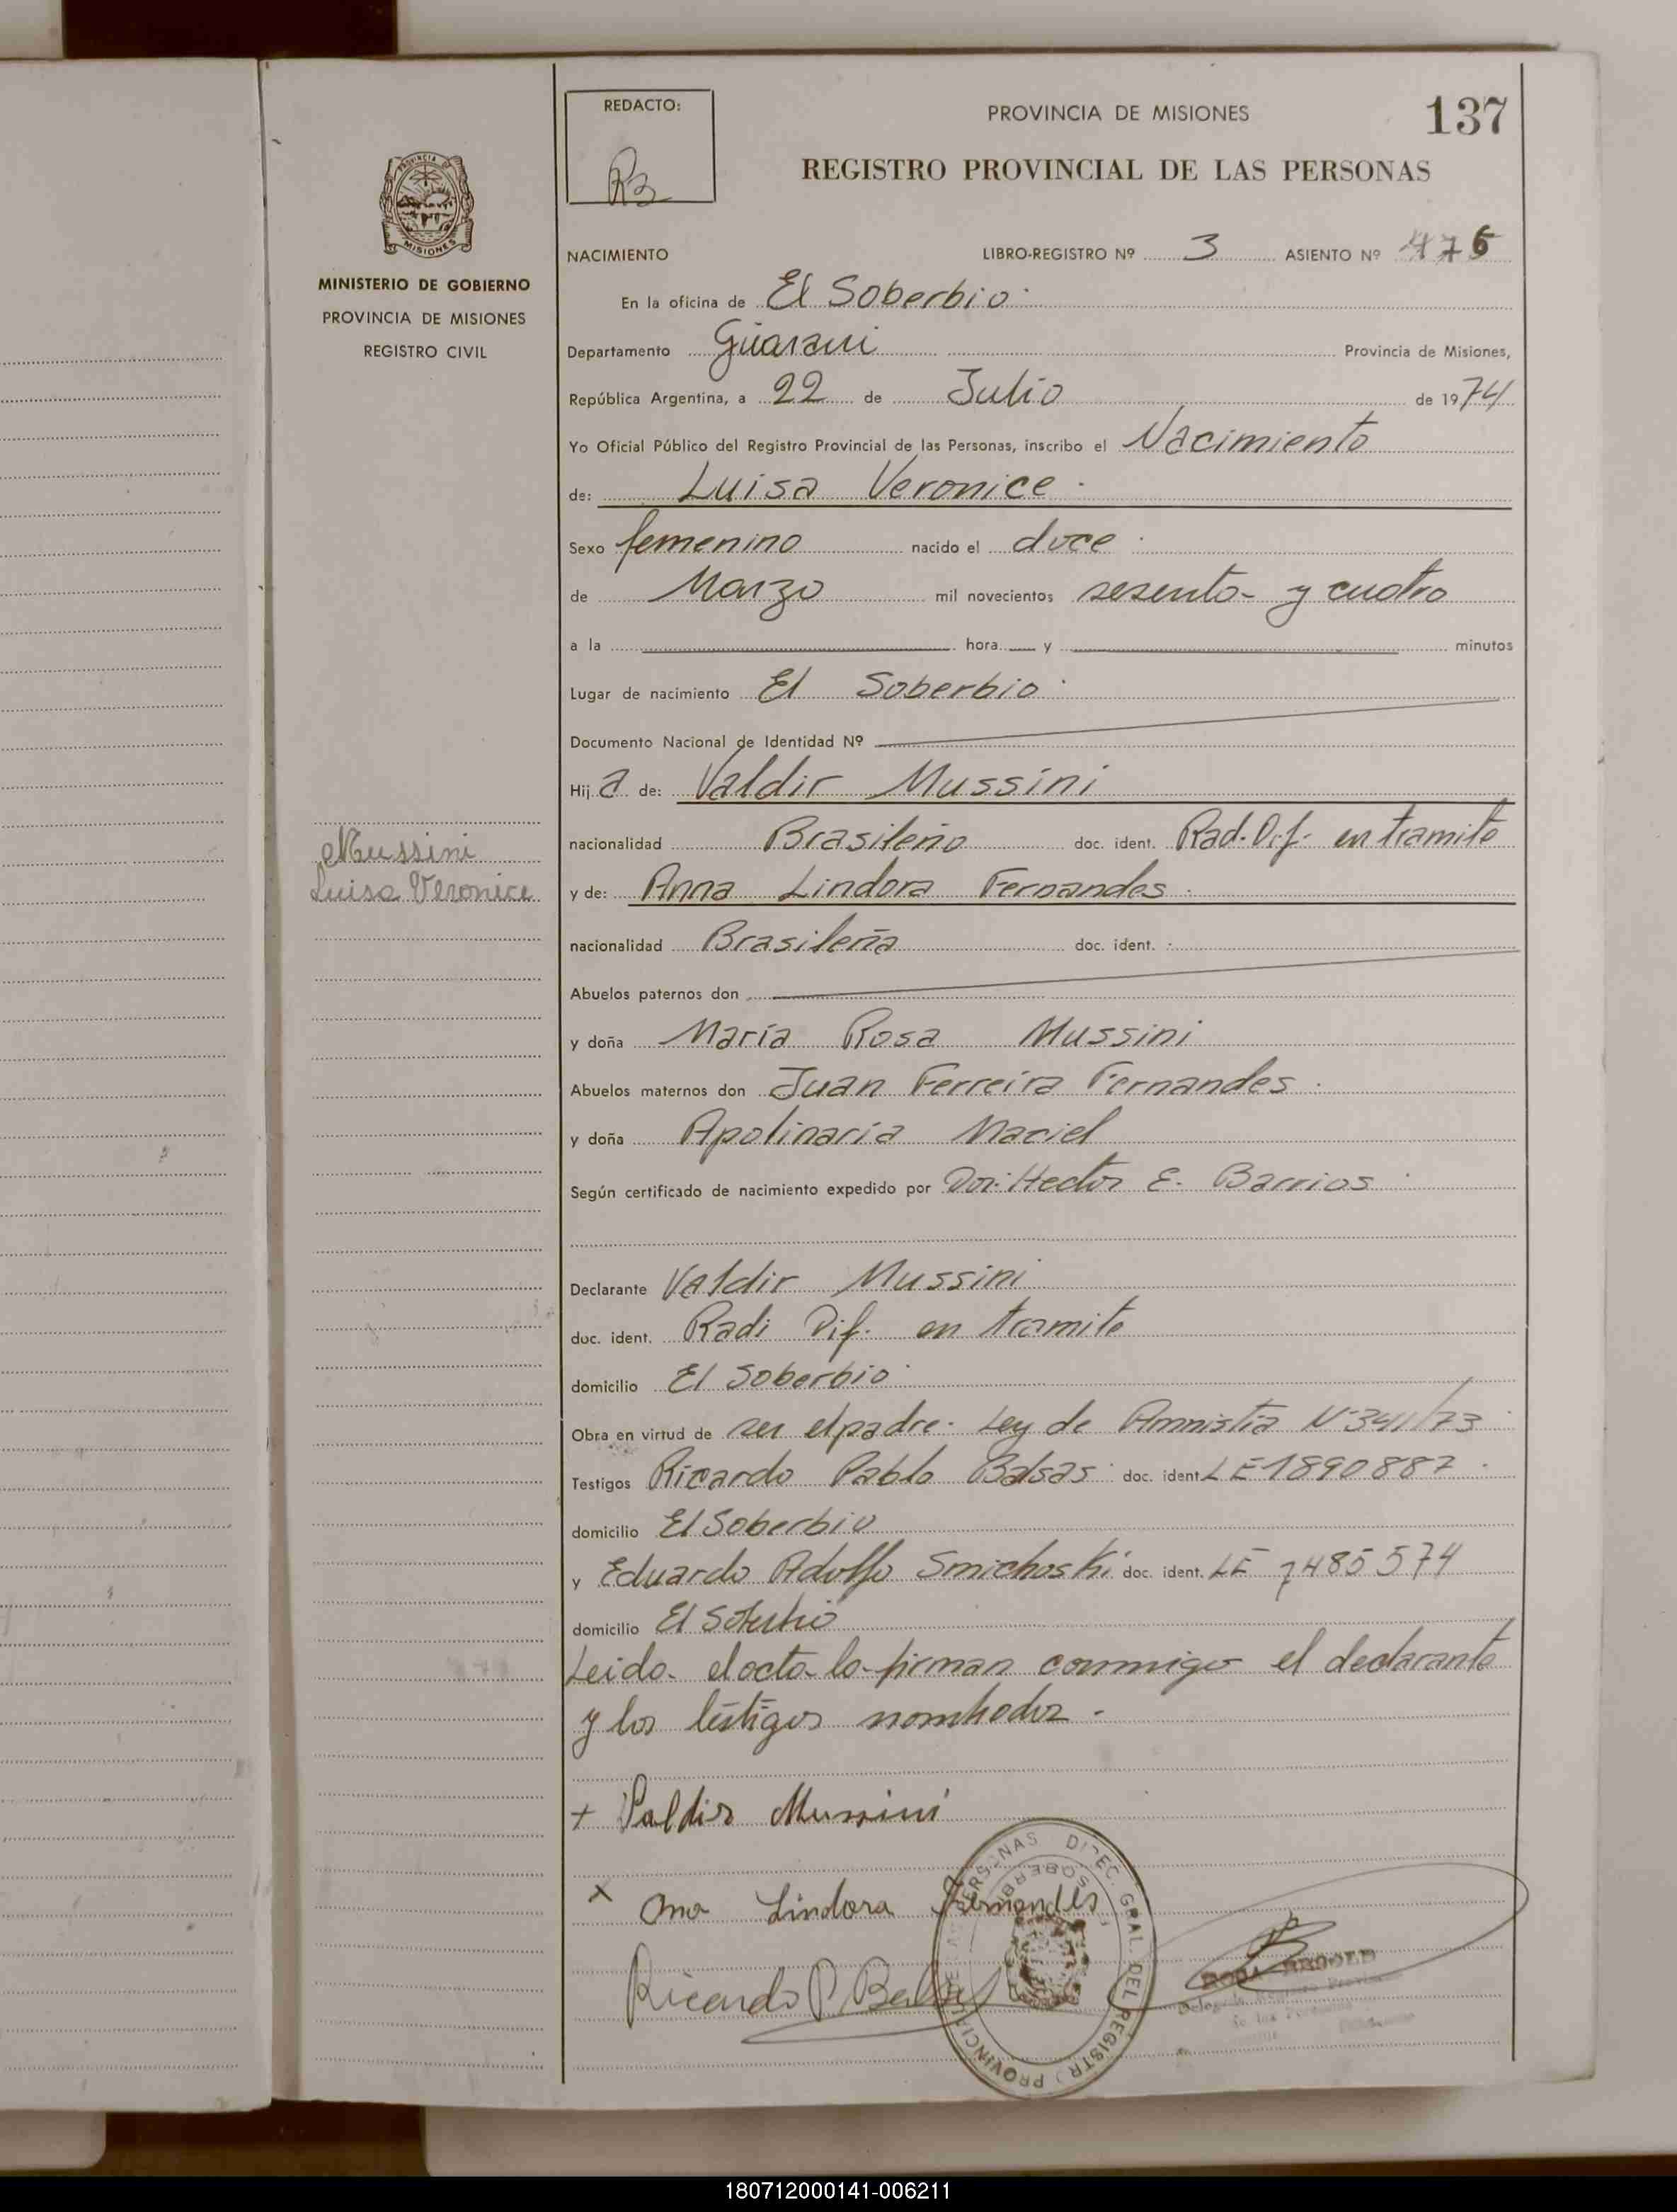 REDACTO:
RB
PROVINCIA DE MISIONES
137
REGISTRO PROVINCIAL DE LAS PERSONAS
PROVINCIA DE
MISIONES
MINISTERIO DE GOBIERNO
PROVINCIA DE MISIONES
REGISTRO CIVIL
NACIMIENTO LIBRO-REGISTRO Nº 3 ASIENTO Nº 476
En la oficina de El Soberbio
Departamento Guarani Provincia de Misiones,
República Argentina, a 22 de Julio de 1974
Yo Oficial Público del Registro Provincial de las Personas, inscribo el Nacimiento
de: Luisa Veronice
Sexo femenino nacido el doce
de Marzo mil novecientos sesenta y cuatro
a la hora y minutos
Lugar de nacimiento El Soberbio
Documento Nacional de Identidad Nº
Hij a de: Valdir Mussini
nacionalidad Brasileño doc. ident. Rad. Dif. en tramite
Mussini
Luisa Veronice
y de: Anna Lindora Fernandes
nacionalidad Brasileña doc. ident.
Abuelos paternos don
y doña María Rosa Mussini
Abuelos maternos don Juan Ferreira Fernandes
y doña Apolinaria Maciel
Según certificado de nacimiento expedido por Dor. Hector E. Barrios
Declarante Valdir Mussini
doc. ident. Radi Dif. en tramite
domicilio El Soberbio
Obra en virtud de ser el padre. Ley de Amnistia Nº 341/73
Testigos Ricardo Pablo Balsas doc. ident. LE 1890887
domicilio El Soberbio
y Eduardo Adolfo Smichoski doc. ident. LE 7485574
domicilio El Soberbio
Leido el acta lo firman conmigo el declarante
y los testigos nombrados.
+ Valdir Mussini
x Ana Lindora Fernandes
Ricardo P. Balsas
180712000141-006211